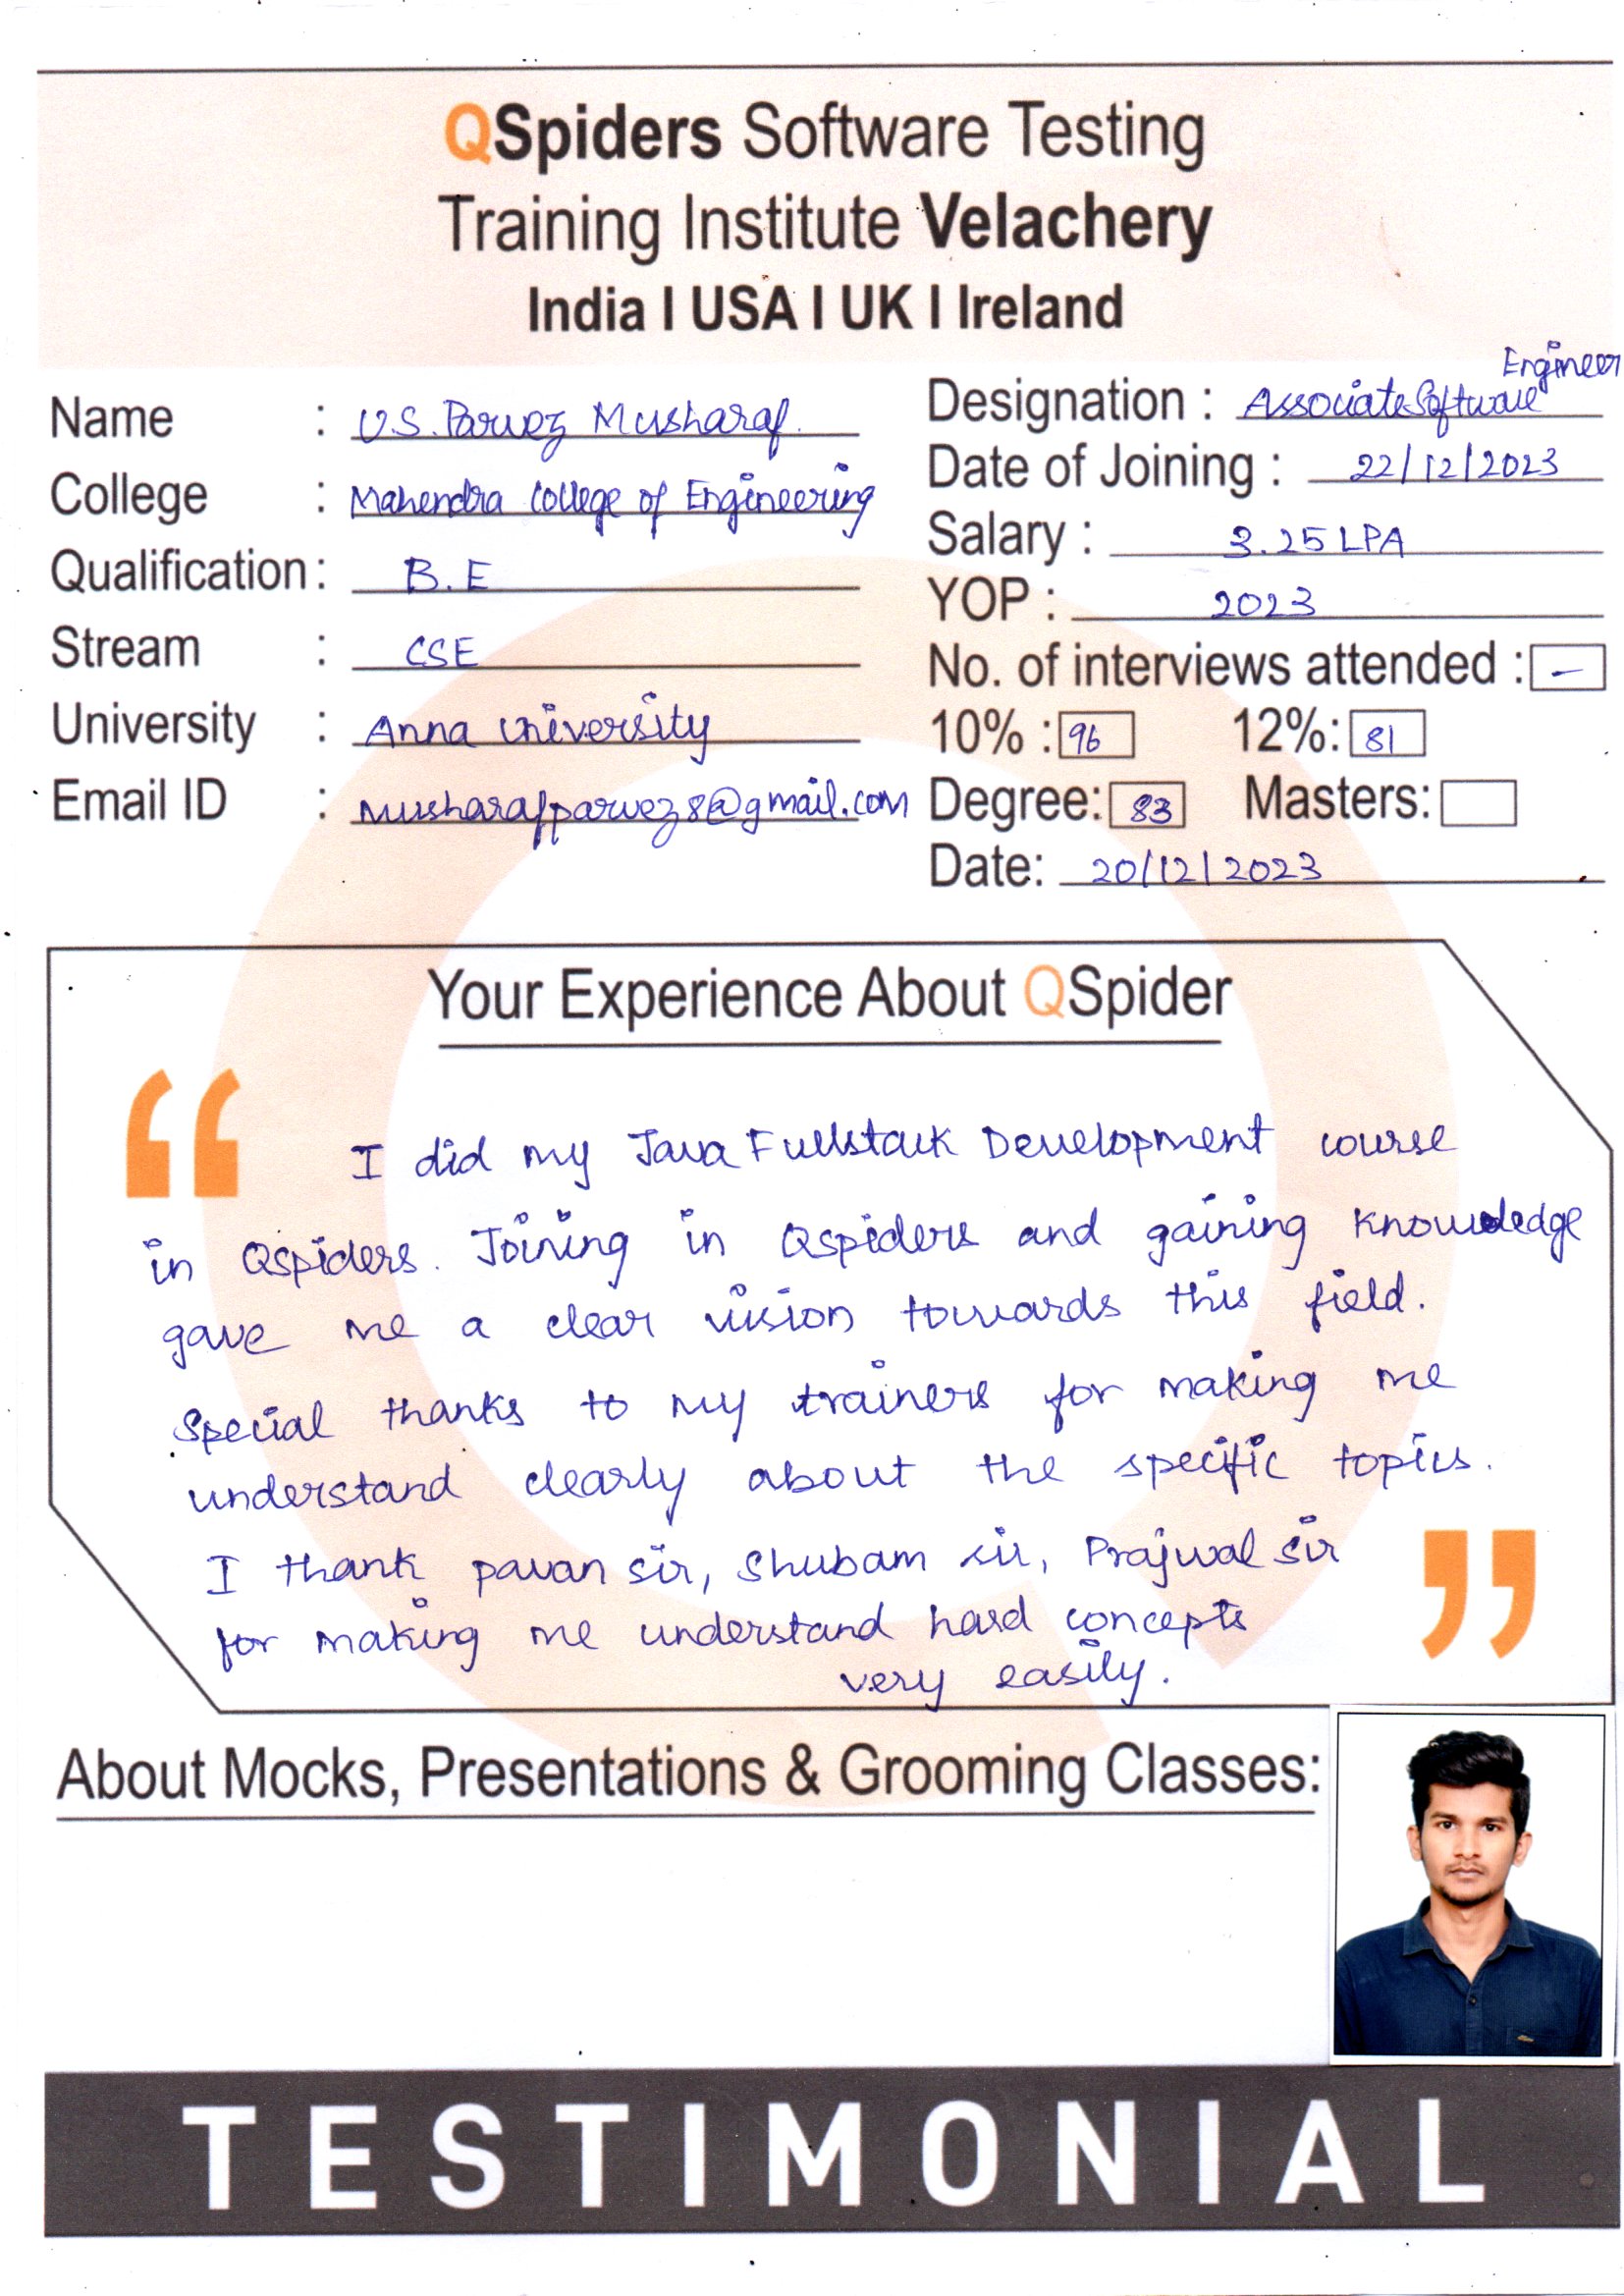 QSpiders Software Testing
Training Institute Velachery
India I USA I UK I Ireland
Name : U.S. Parvez Musharaf.
College : Mahendra College of Engineering
Qualification : B.E
Stream : CSE
University : Anna University
Email ID : musharafparvez8@gmail.com
Designation : Associate Software Engineer
Date of Joining : 22/12/2023
Salary : 3.25 LPA
YOP : 2023
No. of interviews attended : -
10% : 96 12%: 81
Degree: 83 Masters:
Date: 20/12/2023
Your Experience About QSpider
“
I did my Java Fullstack Development course
in Qspiders. Joining in Qspiders and gaining knowledge
gave me a clear vision towards this field.
Special thanks to my trainers for making me
understand clearly about the specific topics.
I thank pavan sir, Shubam sir, Prajwal sir
for making me understand hard concepts
very easily.
”
About Mocks, Presentations & Grooming Classes:
TESTIMONIAL